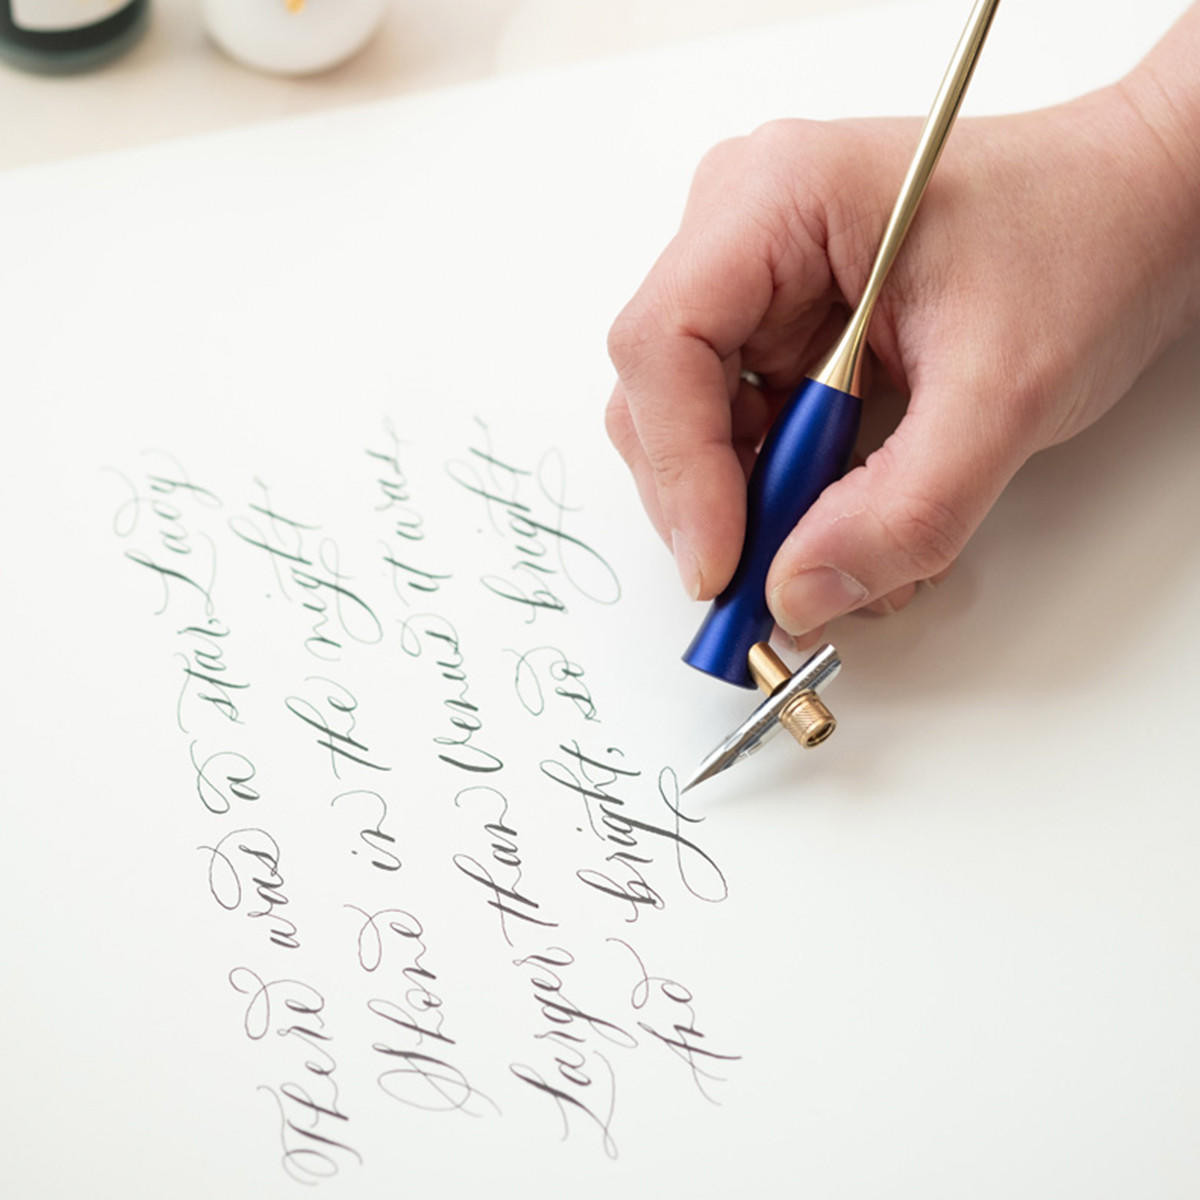 There was a star, Lacy
Shone in the night
Larger than Venus it was
And bright, so bright